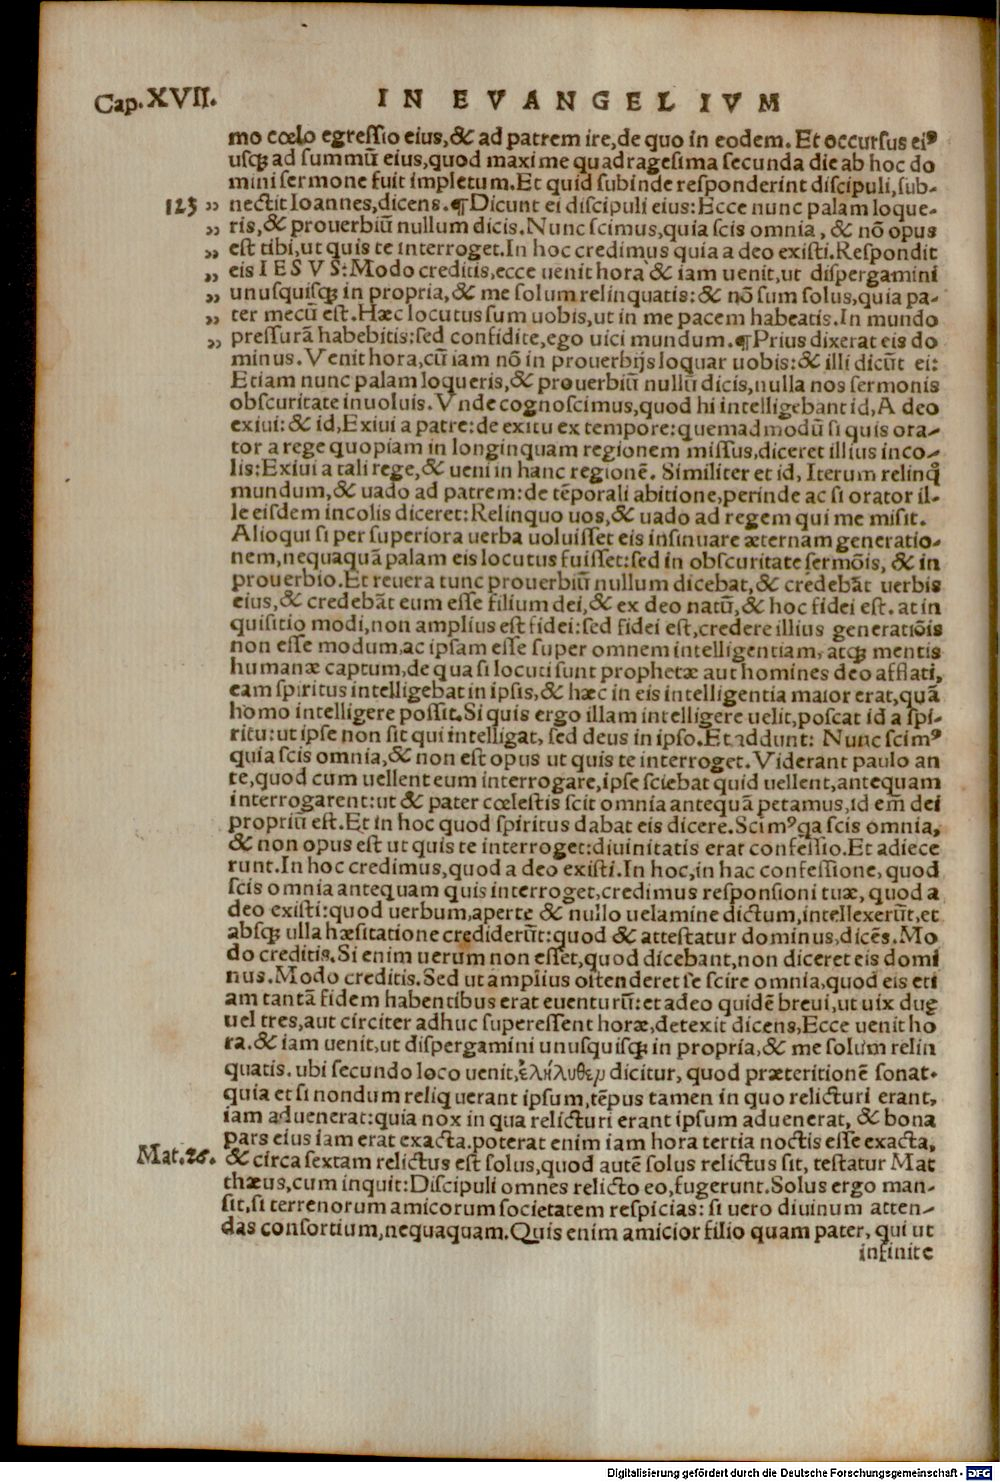 Cap. XVII. IN EVANGELIVM
mo cœlo egreſſio eius, & ad patrem ire, de quo in eodem. Et occurſus eiꝰ
uſqꝫ ad ſummũ eius, quod maxime quadrageſima ſecunda die ab hoc do
mini ſermone fuit impletum. Et quid ſubinde reſponderint diſcipuli, ſub-
123 ,, nectit Ioannes, dicens. ¶ Dicunt ei diſcipuli eius: Ecce nunc palam loque-
,, ris, & prouerbiũ nullum dicis. Nunc ſcimus, quia ſcis omnia, & nõ opus
,, eſt tibi, ut quis te interroget. In hoc credimus quia a deo exiſti. Reſpondit
,, eis IESVS: Modo creditis, ecce uenit hora & iam uenit, ut diſpergamini
,, unuſquiſqꝫ in propria, & me ſolum relinquatis: & nõ ſum ſolus, quia pa-
,, ter mecũ eſt. Hæc locutus ſum uobis, ut in me pacem habeatis. In mundo
,, preſſurã habebitis: ſed confidite, ego uici mundum. ¶ Prius dixerat eis do
minus. Venit hora, cũ iam nõ in prouerbijs loquar uobis: & illi dicũt ei:
Etiam nunc palam loqueris, & prouerbiũ nullũ dicis, nulla nos ſermonis
obſcuritate inuoluis. Vnde cognoſcimus, quod hi intelligebant id, A deo
exiui: & id, Exiui a patre: de exitu ex tempore: quemadmodũ ſi quis ora-
tor a rege quopiam in longinquam regionem miſſus, diceret illius inco-
lis: Exiui a tali rege, & ueni in hanc regionẽ. Similiter et id, Iterum relinq̃
mundum, & uado ad patrem: de tẽporali abitione, perinde ac ſi orator il-
le eiſdem incolis diceret: Relinquo uos, & uado ad regem qui me miſit.
Alioqui ſi per ſuperiora uerba uoluiſſet eis inſinuare æternam generatio-
nem, nequaquã palam eis locutus fuiſſet: ſed in obſcuritate ſermõis, & in
prouerbio. Et reuera tunc prouerbiũ nullum dicebat, & credebãt uerbis
eius, & credebãt eum eſſe filium dei, & ex deo natũ, & hoc fidei eſt. at in
quiſitio modi, non amplius eſt fidei: ſed fidei eſt, credere illius generatiõis
non eſſe modum, ac ipſam eſſe ſuper omnem intelligentiam, atqꝫ mentis
humanæ captum, de qua ſi locuti ſunt prophetæ aut homines deo afflati,
eam ſpiritus intelligebat in ipſis, & hæc in eis intelligentia maior erat, quã
homo intelligere poſſit. Si quis ergo illam intelligere uelit, poſcat id a ſpi-
ritu: ut ipſe non ſit qui intelligat, ſed deus in ipſo. Et addunt: Nunc ſcimꝰ
quia ſcis omnia, & non eſt opus ut quis te interroget. Viderant paulo an
te, quod cum uellent eum interrogare, ipſe ſciebat quid uellent, antequam
interrogarent: ut & pater cœleſtis ſcit omnia antequã petamus, id em̃ dei
propriũ eſt. Et in hoc quod ſpiritus dabat eis dicere. Scimꝰ qa ſcis omnia,
& non opus eſt ut quis te interroget: diuinitatis erat confeſſio. Et adiece
runt. In hoc credimus, quod a deo exiſti. In hoc, in hac confeſſione, quod
ſcis omnia antequam quis interroget, credimus reſponſioni tuæ, quod a
deo exiſti: quod uerbum, aperte & nullo uelamine dictum, intellexerũt, et
abſqꝫ ulla hæſitatione crediderũt: quod & atteſtatur dominus, dicẽs. Mo
do creditis. Si enim uerum non eſſet, quod dicebant, non diceret eis domi
nus. Modo creditis. Sed ut amplius oſtenderet ſe ſcire omnia, quod eis eti
am tantã fidem habentibus erat euenturũ: et adeo quidẽ breui, ut uix duę
uel tres, aut circiter adhuc ſupereſſent horæ, detexit dicens, Ecce uenit ho
ra. & iam uenit, ut diſpergamini unuſquiſqꝫ in propria, & me ſolum relin
quatis. ubi ſecundo loco uenit, dicitur, quod præteritionẽ ſonat.
quia et ſi nondum reliquerant ipſum, tẽpus tamen in quo relicturi erant,
iam aduenerat: quia nox in qua relicturi erant ipſum aduenerat, & bona
pars eius iam erat exacta. poterat enim iam hora tertia noctis eſſe exacta,
Mat. 26. & circa ſextam relictus eſt ſolus, quod autẽ ſolus relictus ſit, teſtatur Mat
thæus, cum inquit: Diſcipuli omnes relicto eo, fugerunt. Solus ergo man-
ſit, ſi terrenorum amicorum ſocietatem reſpicias: ſi uero diuinum atten-
das conſortium, nequaquam. Quis enim amicior filio quam pater, qui ut
infinite
Digitalisierung gefördert durch die Deutsche Forschungsgemeinschaft - DFG